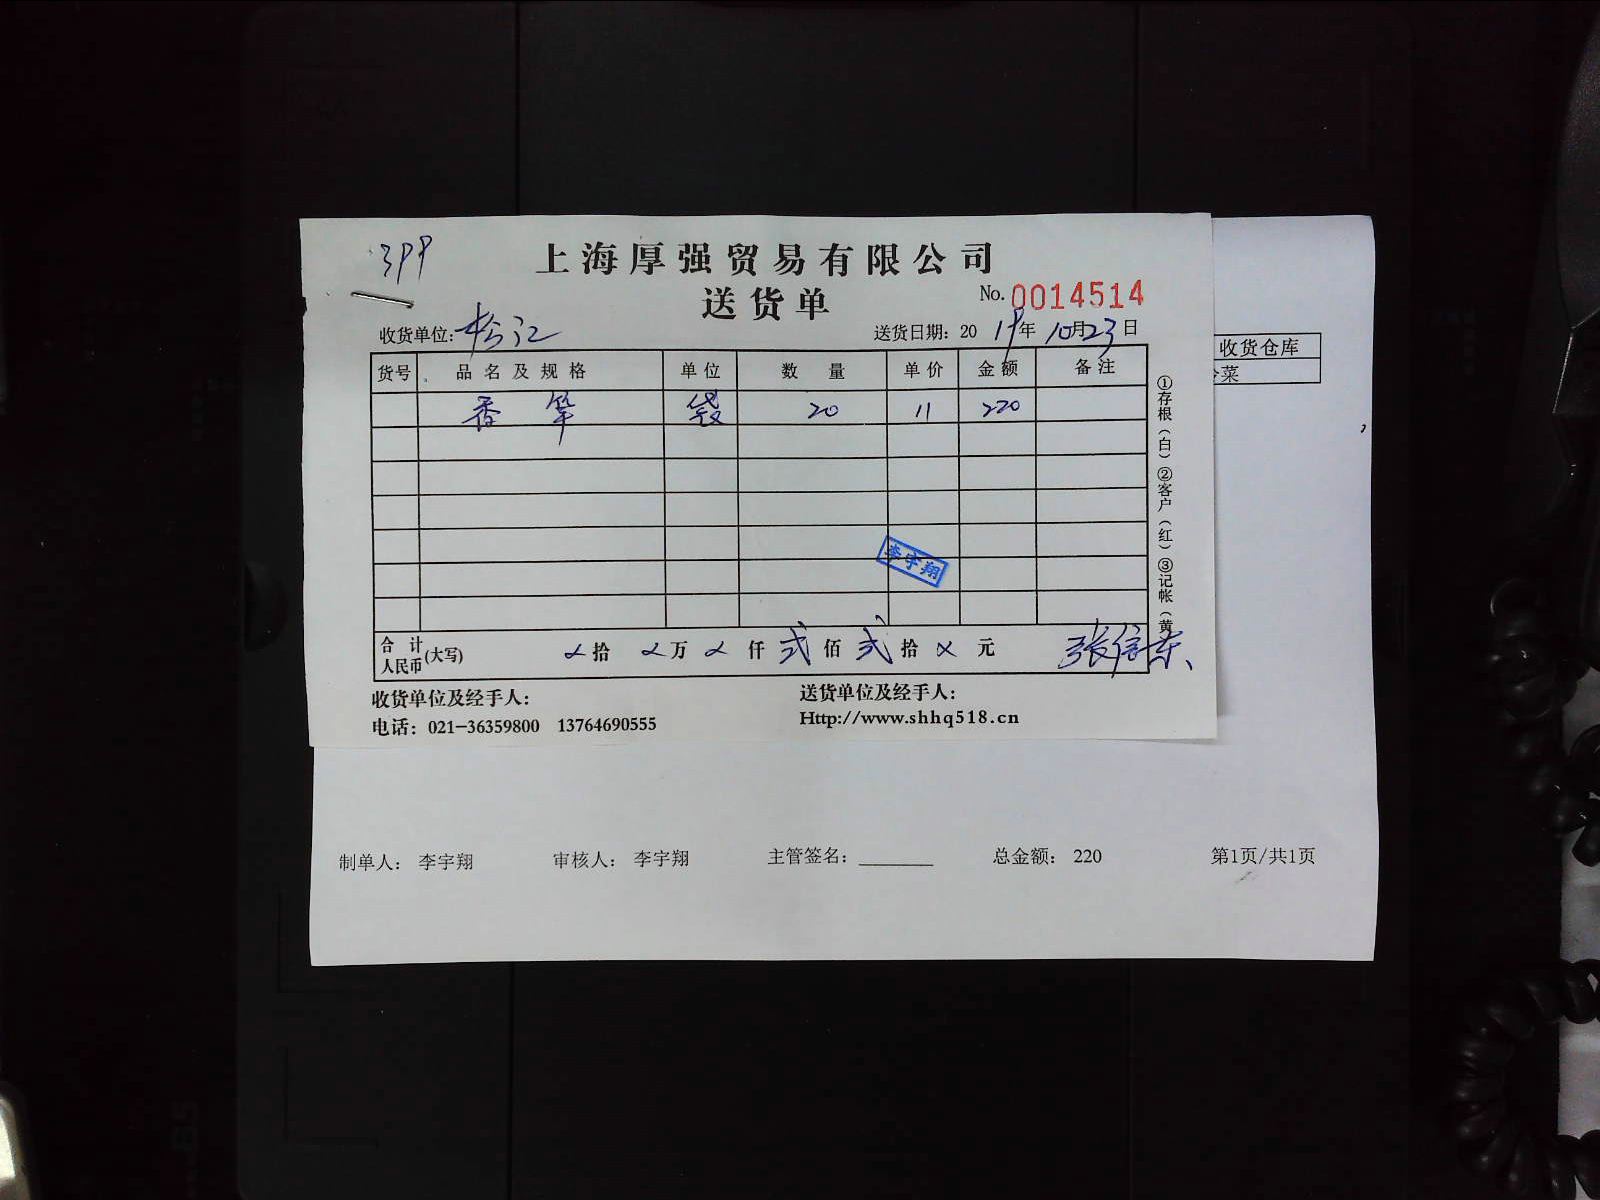 399
上海厚强贸易有限公司
送货单
No. 0014514
收货单位: 松江
送货日期: 2019年10月23日
货号 品名及规格 单位 数量 单价 金额 备注
香笋 袋 20 11 220
李宇翔
合计人民币(大写) ×拾×万×仟弍佰弍拾×元
张信东
收货单位及经手人:
送货单位及经手人:
电话: 021-36359800 13764690555
Http://www.shhq518.cn
①存根(白)②客户(红)③记帐(黄
收货仓库
菜
制单人: 李宇翔 审核人: 李宇翔 主管签名: 总金额: 220 第1页/共1页